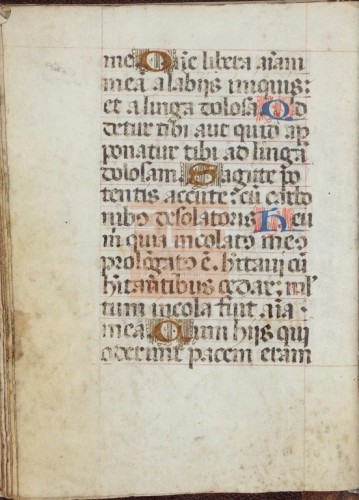 me Dñe libera aīam
meā a labiis iniquis:
et a linga dolosa Qd
detur tibi aut quid ap
ponatur tibi ad linga
dolosam Sagitte po
tentis accute: cū carbo
nibȝ desolatoris Heu
m quia incolatꝰ meꝰ
prolōgatꝰ ē. hītavi cū
hītantibus cedar: ml
tum incola fuit aīa
mea Cum hiis qui
oderunt pacem eram